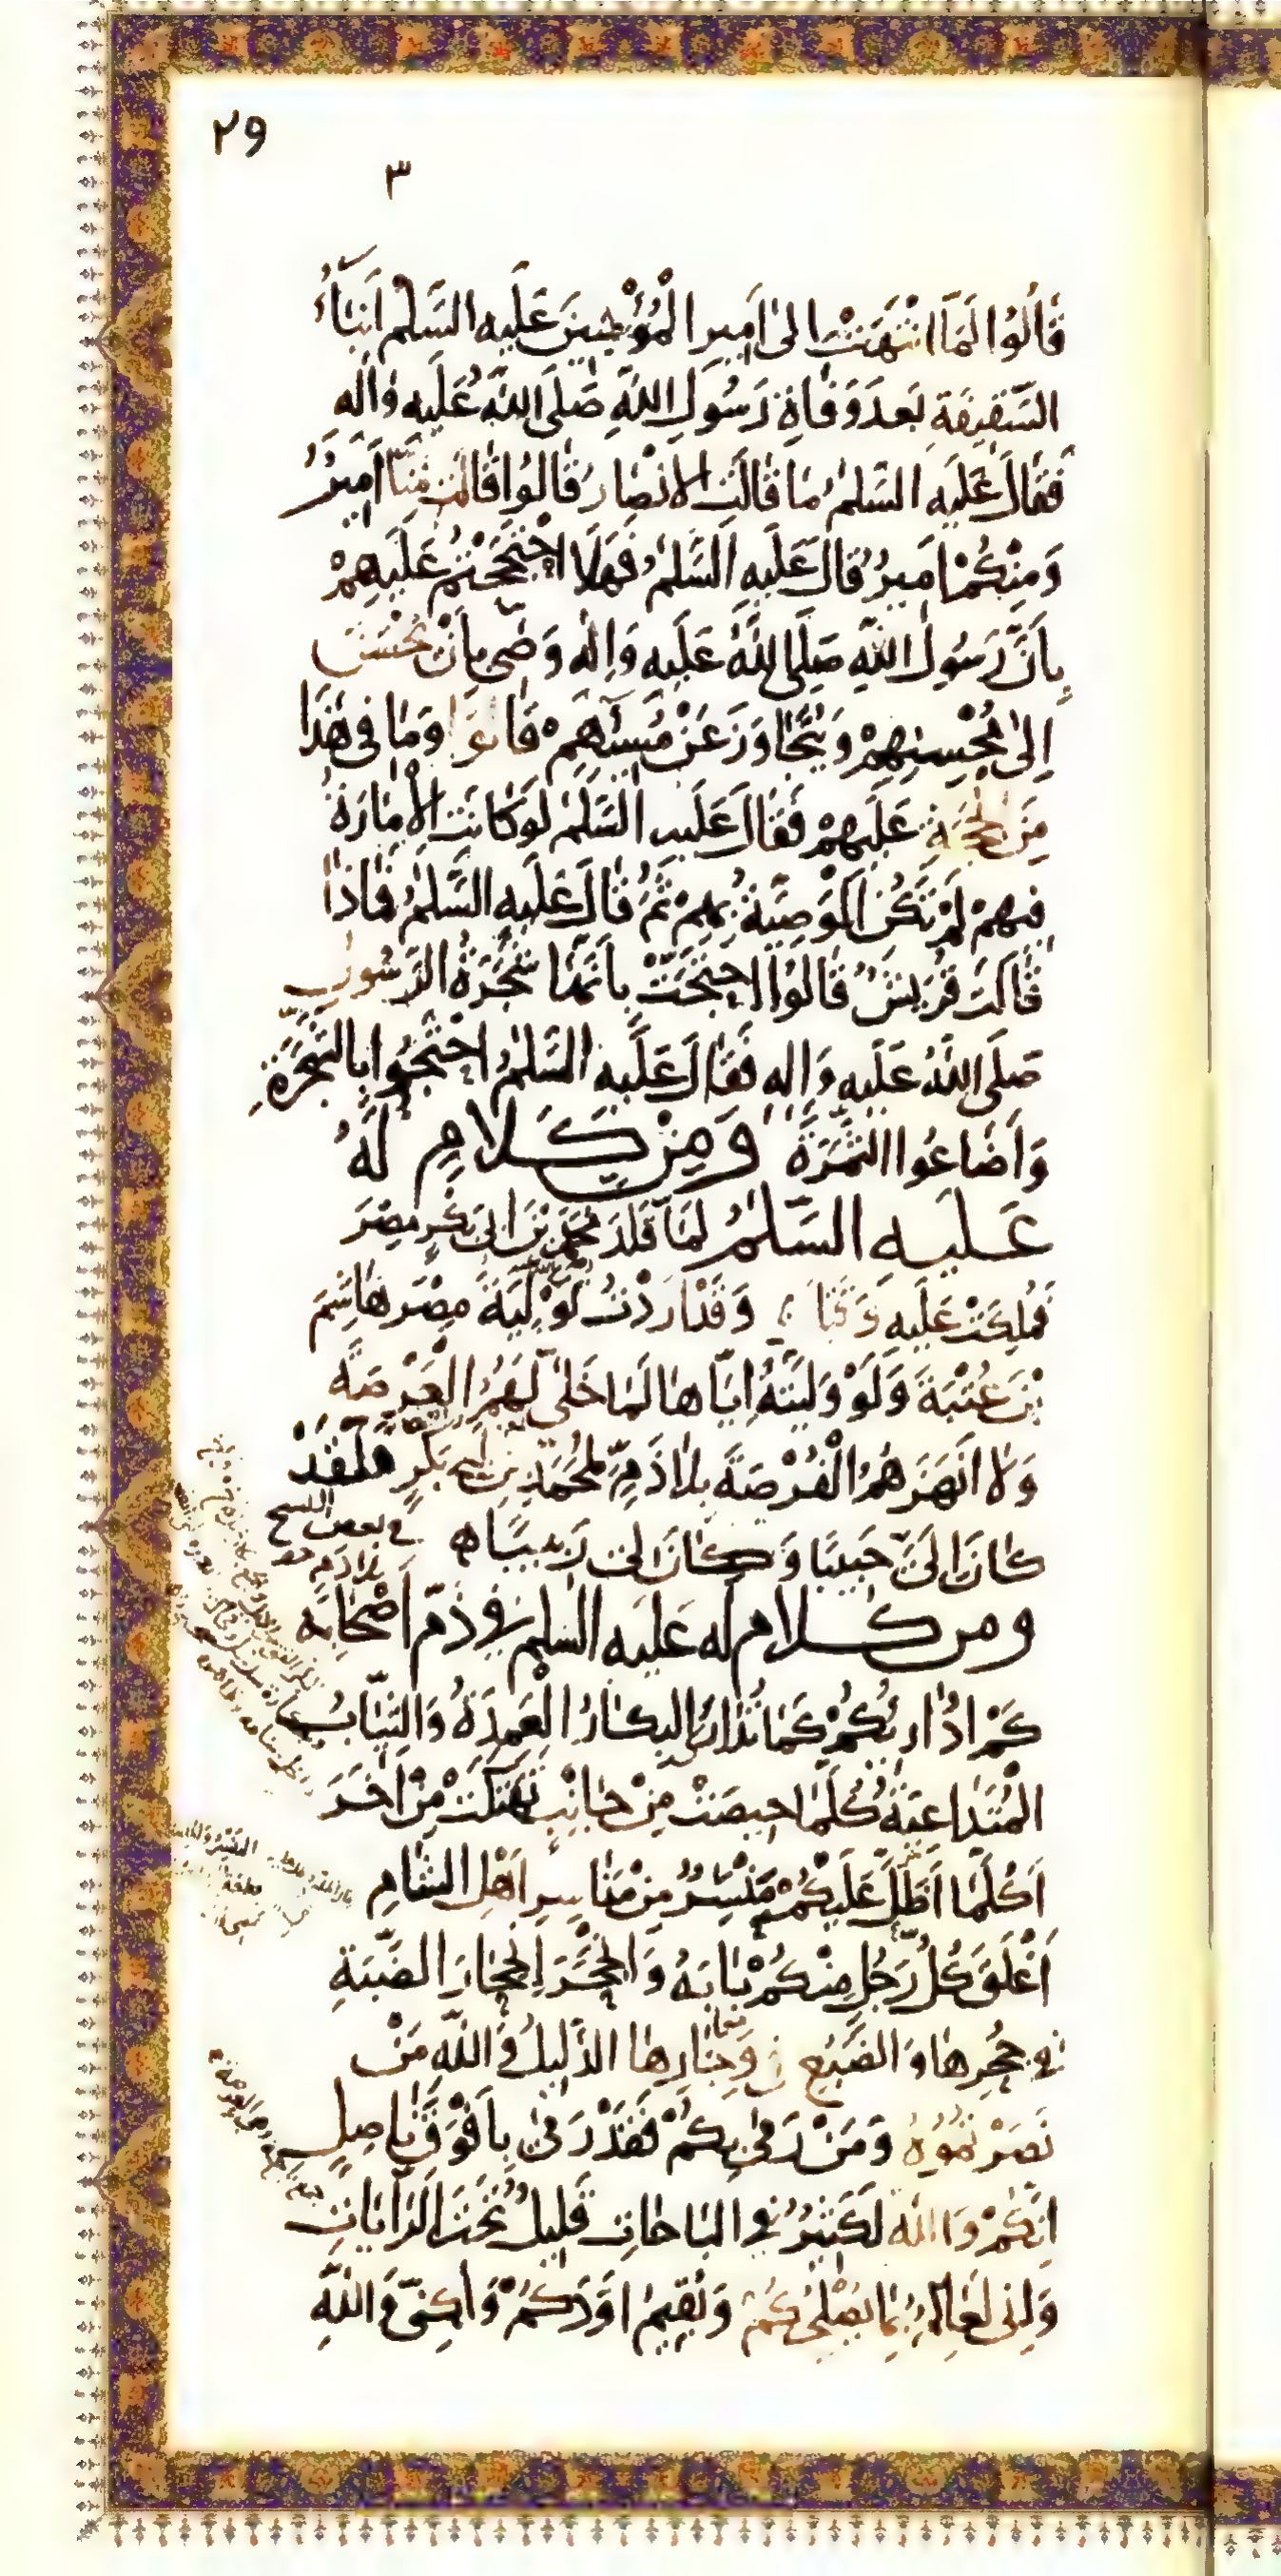 ٢٩
٣
قَالُوا لَمَّا انْتَهَتْ اِلىٰ اَمِيرِ الْمُؤْمِنِينَ عَلَيهِ السَّلٰم اَنْبَآءُ
السَّقِيفَةِ بَعدَ وَفَاةِ رَسُولِ اللهِ صَلَّى اللهُ عَلَيهِ وَاٰلِهِ
فَقَالَ عَلَيهِ السَّلٰمُ مَا قَالَتِ الاَنْصَارُ قَالُوا قَالَتْ مِنَّا اَمِيرٌ
وَمِنْكُمْ اَمِيرٌ قَالَ عَلَيهِ السَّلٰمُ فَهَلَّا احْتَجَجْتُمْ عَلَيهِمْ
بِاَنَّ رَسُولَ اللهِ صَلَّى اللهُ عَلَيهِ وَاٰلِه وَصّٰى بِاَنْ يُحْسَنَ
اِلىٰ مُحْسِنِهِمْ وَيُتَجَاوَزَ عَنْ مُسِيئِهِمْ قَالُوا وَمَا فِى هٰذَا
مِنَ الْحُجَّةِ عَلَيهِمْ فَقَالَ عَلَيهِ السَّلٰمُ لَو كَانَتِ الْاِمَارَةُ
فِيهِمْ لَمْ تَكُنِ الْوَصِيَّةُ بِهِمْ ثُمَّ قَالَ عَلَيهِ السَّلٰمُ فَمَاذَا
قَالَتْ قُرَيشٌ قَالُوا احْتَجَّتْ بِاَنَّهَا شَجَرَةُ الرَّسُولِ
صَلَّى اللهُ عَلَيهِ وَاٰلِهِ فَقَالَ عَلَيهِ السَّلٰمُ احْتَجُّوا بِالشَّجَرَةِ
وَاَضَاعُوا الثَّمَرَةَ وَمِنْ كَلَامٍ لَهُ
عَلَيهِ السَّلٰمُ لَمَّا قَلَّدَ مُحَمَّدَ بْنَ اَبِى بَكْرٍ مِصْرَ
فَمُلِكَتْ عَلَيهِ وَقَدْ اَرَدْتُ تَوْلِيَةَ مِصْرَ هَاشِمَ
بْنَ عُتْبَةَ وَلَوْ وَلَّيْتُهُ اِيَّاهَا لَمَا خَلّٰى لَهُمُ الْعَرْصَةَ
وَلَا اَنْهَزَهُمُ الْفُرْصَةَ بِلَا ذَمٍّ لِمُحَمَّدِ بْنِ اَبِى بَكْرٍ فَلَقَدْ
كَانَ اِلَىَّ حَبِيبًا وَكَانَ لِى رَبِيبًا
فى بعض النسخ
بلا ذم
ومن كلام له عَلَيهِ السلٰم فِى ذَمِّ اَصْحَابِه
كَمْ اُدَارِيكُمْ كَمَا تُدَارَى الْبِكَارُ الْعَمِدَةُ وَالثِّيَابُ
الْمُتَدَاعِيَةُ كُلَّمَا حِيصَتْ مِنْ جَانِبٍ تَهَتَّكَتْ مِنْ اٰخَرَ
اَكُلَّمَا اَظَلَّ عَلَيْكُمْ مَنْسِرٌ مِنْ مَنَاسِرِ اَهْلِ الشَّامِ
اَغْلَقَ كُلُّ رَجُلٍ مِنْكُمْ بَابَهُ وَانْجَحَرَ اِنْجِحَارَ الضَّبَّةِ
فِى جُحْرِهَا وَ الضَّبُعِ فِى وِجَارِهَا الذَّلِيلُ وَاللهِ مَنْ
نَصَرْتُمُوهُ وَمَنْ رَمٰى بِكُمْ فَقَدْ رَمٰى بِاَفْوَقَ نَاصِلٍ
اِنَّكُمْ وَاللهِ لَكَثِيرٌ فِى الْبَاحَاتِ قَلِيلٌ تَحْتَ الرَّايَاتِ
وَاِنِّى لَعَالِمٌ بِمَا يُصْلِحُكُمْ وَيُقِيمُ اَوَدَكُمْ وَلٰكِنِّى وَاللهِ